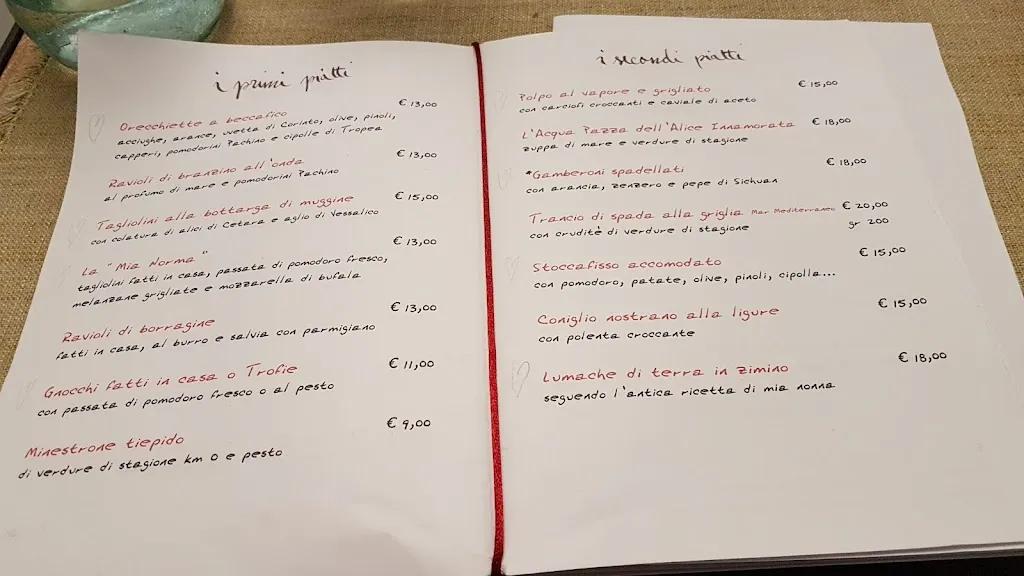 i primi piatti
€ 13,00
Orecchiette a beccafico
acciughe, arance, uvetta di Corinto, olive, pinoli,
capperi, pomodorini Pachino e cipolle di Tropea
€ 13,00
Ravioli di branzino all'onda
al profumo di mare e pomodorini Pachino
€ 15,00
Tagliolini alla bottarga di muggine
con colatura di alici di Cetara e aglio di Vessalico
€ 13,00
La "Mia Norma"
tagliolini fatti in casa, passata di pomodoro fresco,
melanzane grigliate e mozzarella di bufala
€ 13,00
Ravioli di borragine
fatti in casa, al burro e salvia con parmigiano
€ 11,00
Gnocchi fatti in casa o Trofie
con passata di pomodoro fresco o al pesto
€ 9,00
Minestrone tiepido
di verdure di stagione km 0 e pesto
i secondi piatti
Polpo al vapore e grigliato € 15,00
con carciofi croccanti e caviale di aceto
L'Acqua Pazza dell'Alice Innamorata € 18,00
zuppa di mare e verdure di stagione
*Gamberoni spadellati € 18,00
con arancia, zenzero e pepe di Sichuan
Trancio di spada alla griglia Mar Mediterraneo € 20,00
con crudité di verdure di stagione gr 200
Stoccafisso accomodato € 15,00
con pomodoro, patate, olive, pinoli, cipolla...
Coniglio nostrano alla ligure € 15,00
con polenta croccante
Lumache di terra in zimino € 18,00
seguendo l'antica ricetta di mia nonna